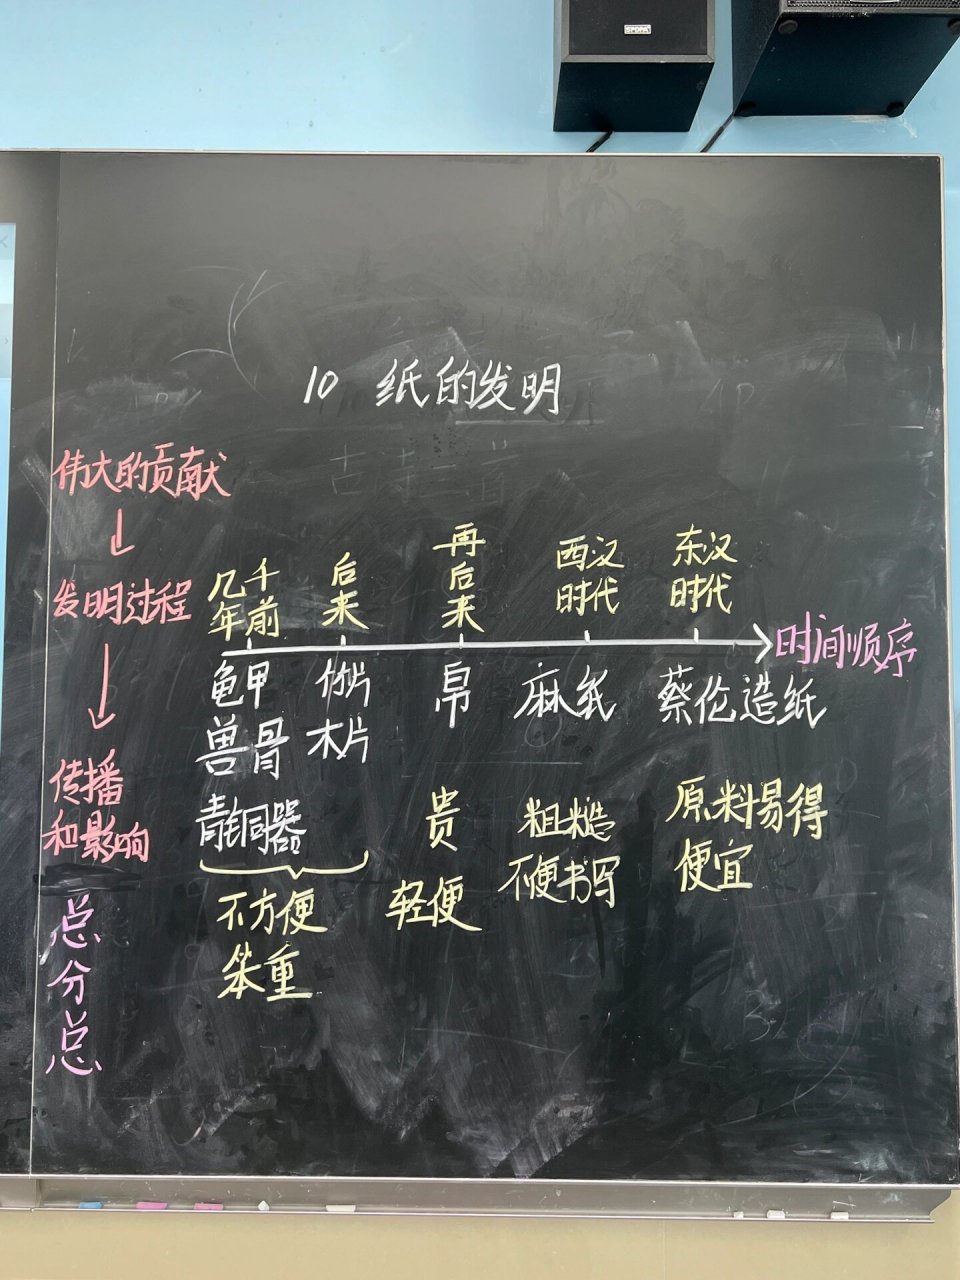 10 纸的发明
伟大的贡献
↓
发明过程
↓
传播
和影响
总
分
总
几千
年前
后
来
再
后
来
西汉
时代
东汉
时代
时间顺序
龟甲
兽骨
青铜器
竹片
木片
帛
麻纸
蔡伦造纸
不方便
笨重
贵
轻便
粗糙
不便书写
原料易得
便宜